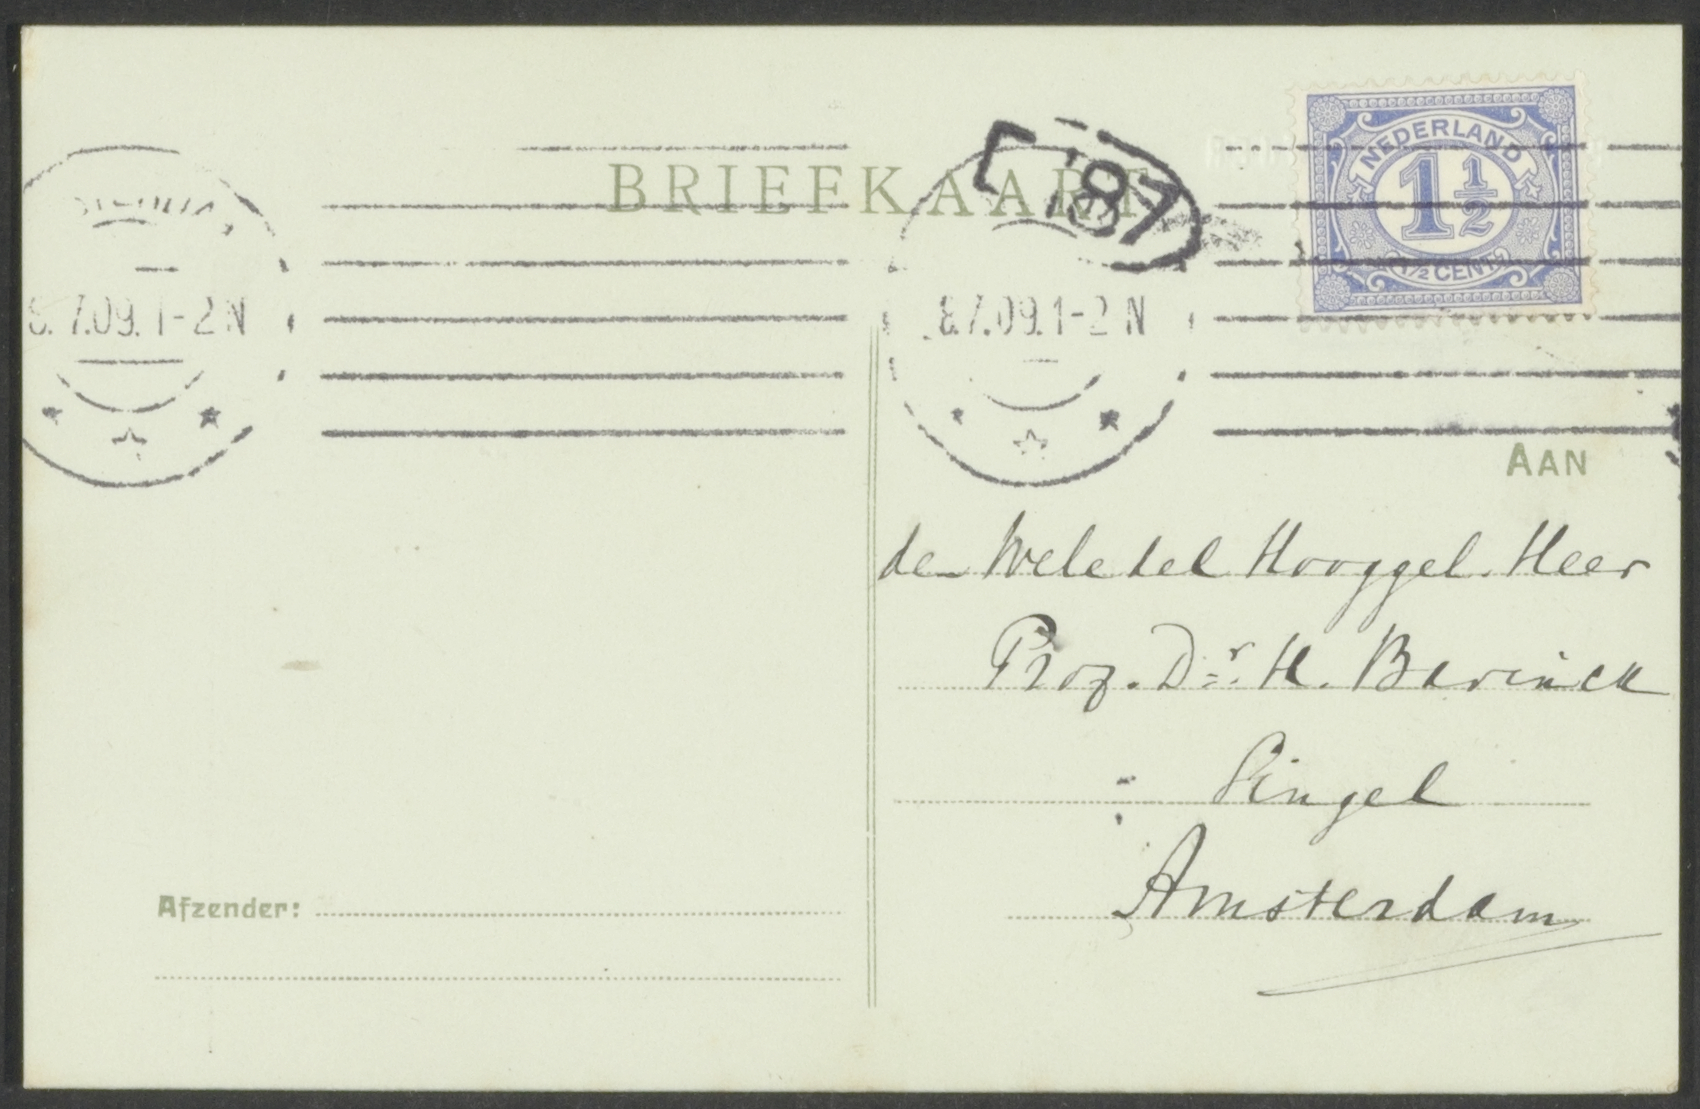 BRIEFKAART
'87
NEDERLAND
1 1/2
1/2 CENT
8.7.09.1-2 N
8.7.09.1-2 N
AAN
den Weledel Hooggel. Heer
Prof. Dr. H. Bavinck
Singel
Amsterdam
Afzender: